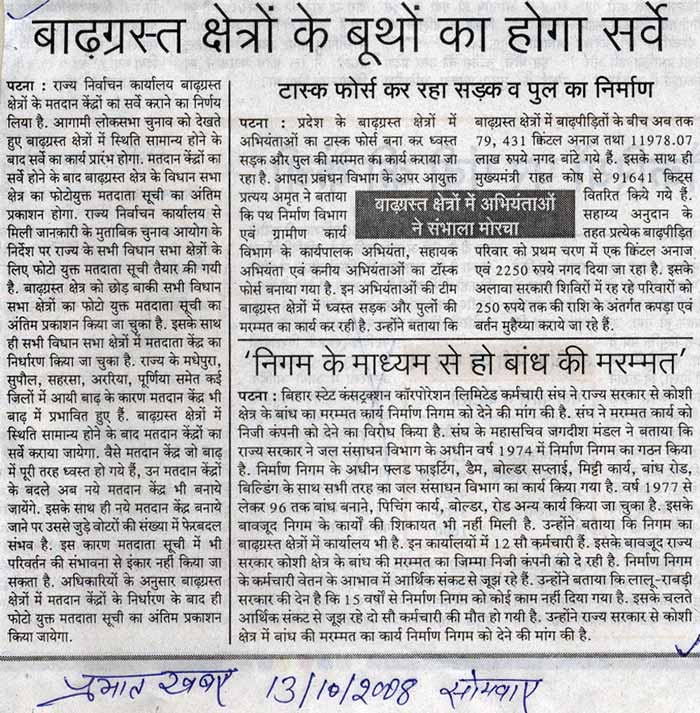 बाढ़ग्रस्त क्षेत्रों के बूथों का होगा सर्वे
पटना : राज्य निर्वाचन कार्यालय बाढ़ग्रस्त
क्षेत्रों के मतदान केंद्रों का सर्वे कराने का निर्णय
लिया है. आगामी लोकसभा चुनाव को देखते
हुए बाढ़ग्रस्त क्षेत्रों में स्थिति सामान्य होने के
बाद सर्वे का कार्य प्रारंभ होगा. मतदान केंद्रों का
सर्वे होने के बाद बाढ़ग्रस्त क्षेत्र के विधान सभा
क्षेत्र का फोटोयुक्त मतदाता सूची का अंतिम
प्रकाशन होगा. राज्य निर्वाचन कार्यालय से
मिली जानकारी के मुताबिक चुनाव आयोग के
निर्देश पर राज्य के सभी विधान सभा क्षेत्रों के
लिए फोटो युक्त मतदाता सूची तैयार की गयी
है. बाढ़ग्रस्त क्षेत्र को छोड़ बाकी सभी विधान
सभा क्षेत्रों का फोटो युक्त मतदाता सूची का
अंतिम प्रकाशन किया जा चुका है. इसके साथ
ही सभी विधान सभा क्षेत्रों में मतदान केंद्र का
निर्धारण किया जा चुका है. राज्य के मधेपुरा,
सुपौल, सहरसा, अररिया, पूर्णिया समेत कई
जिलों में आयी बाढ़ के कारण मतदान केंद्र भी
बाढ़ में प्रभावित हुए हैं. बाढ़ग्रस्त क्षेत्रों में
स्थिति सामान्य होने के बाद मतदान केंद्रों का
सर्वे कराया जायेगा. वैसे मतदान केंद्र जो बाढ़
में पूरी तरह ध्वस्त हो गये हैं, उन मतदान केंद्रों
के बदले अब नये मतदान केंद्र भी बनाये
जायेंगे. इसके साथ ही नये मतदान केंद्र बनाये
जाने पर उससे जुड़े वोटरों की संख्या में फेरबदल
संभव है. इस कारण मतदाता सूची में भी
परिवर्तन की संभावना से इंकार नहीं किया जा
सकता है. अधिकारियों के अनुसार बाढ़ग्रस्त
क्षेत्रों में मतदान केंद्रों के निर्धारण के बाद ही
फोटो युक्त मतदाता सूची का अंतिम प्रकाशन
किया जायेगा.
टास्क फोर्स कर रहा सड़क व पुल का निर्माण
पटना : प्रदेश के बाढ़ग्रस्त क्षेत्रों में
अभियंताओं का टास्क फोर्स बना कर ध्वस्त
सड़क और पुल की मरम्मत का कार्य कराया जा
रहा है. आपदा प्रबंधन विभाग के अपर आयुक्त
प्रत्यय अमृत ने बताया
कि पथ निर्माण विभाग
एवं ग्रामीण कार्य
विभाग के कार्यपालक अभियंता, सहायक
अभियंता एवं कनीय अभियंताओं का टॉस्क
फोर्स बनाया गया है. इन अभियंताओं की टीम
बाढ़ग्रस्त क्षेत्रों में ध्वस्त सड़क और पुलों की
मरम्मत का कार्य कर रही है. उन्होंने बताया कि
बाढ़ग्रस्त क्षेत्रों में अभियंताओं
ने संभाला मोरचा
बाढ़ग्रस्त क्षेत्रों में बाढ़पीड़ितों के बीच अब तक
79, 431 क्विंटल अनाज तथा 11978.07
लाख रुपये नगद बांटे गये हैं. इसके साथ ही
मुख्यमंत्री राहत कोष से 91641 किट्स
वितरित किये गये हैं.
सहाय्य अनुदान के
तहत प्रत्येक बाढ़पीड़ित
परिवार को प्रथम चरण में एक क्विंटल अनाज
एवं 2250 रुपये नगद दिया जा रहा है. इसके
अलावा सरकारी शिविरों में रह रहे परिवारों को
250 रुपये तक की राशि के अंतर्गत कपड़ा एवं
बर्तन मुहैय्या कराये जा रहे हैं.
‘निगम के माध्यम से हो बांध की मरम्मत’
पटना : बिहार स्टेट कंसट्रक्शन कॉरपोरेशन लिमिटेड कर्मचारी संघ ने राज्य सरकार से कोशी
क्षेत्र के बांध का मरम्मत कार्य निर्माण निगम को देने की मांग की है. संघ ने मरम्मत कार्य को
निजी कंपनी को देने का विरोध किया है. संघ के महासचिव जगदीश मंडल ने बताया कि
राज्य सरकार ने जल संसाधन विभाग के अधीन वर्ष 1974 में निर्माण निगम का गठन किया
है. निर्माण निगम के अधीन फ्लड फाइटिंग, डैम, बोल्डर सप्लाई, मिट्टी कार्य, बांध रोड,
बिल्डिंग के साथ सभी तरह का जल संसाधन विभाग का कार्य किया गया है. वर्ष 1977 से
लेकर 96 तक बांध बनाने, पिचिंग कार्य, बोल्डर, रोड अन्य कार्य किया जा चुका है. इसके
बावजूद निगम के कार्यों की शिकायत भी नहीं मिली है. उन्होंने बताया कि निगम का
बाढ़ग्रस्त क्षेत्रों में कार्यालय भी है. इन कार्यालयों में 12 सौ कर्मचारी हैं. इसके बावजूद राज्य
सरकार कोशी क्षेत्र के बांध की मरम्मत का जिम्मा निजी कंपनी को दे रही है. निर्माण निगम
के कर्मचारी वेतन के आभाव में आर्थिक संकट से जूझ रहे हैं. उन्होंने बताया कि लालू-राबड़ी
सरकार की देन है कि 15 वर्षों से निर्माण निगम को कोई काम नहीं दिया गया है. इसके चलते
आर्थिक संकट से जूझ रहे दो सौ कर्मचारी की मौत हो गयी है. उन्होंने राज्य सरकार से कोशी
क्षेत्र में बांध की मरम्मत का कार्य निर्माण निगम को देने की मांग की है.
प्रभात खबर 13/10/2008 सोमवार